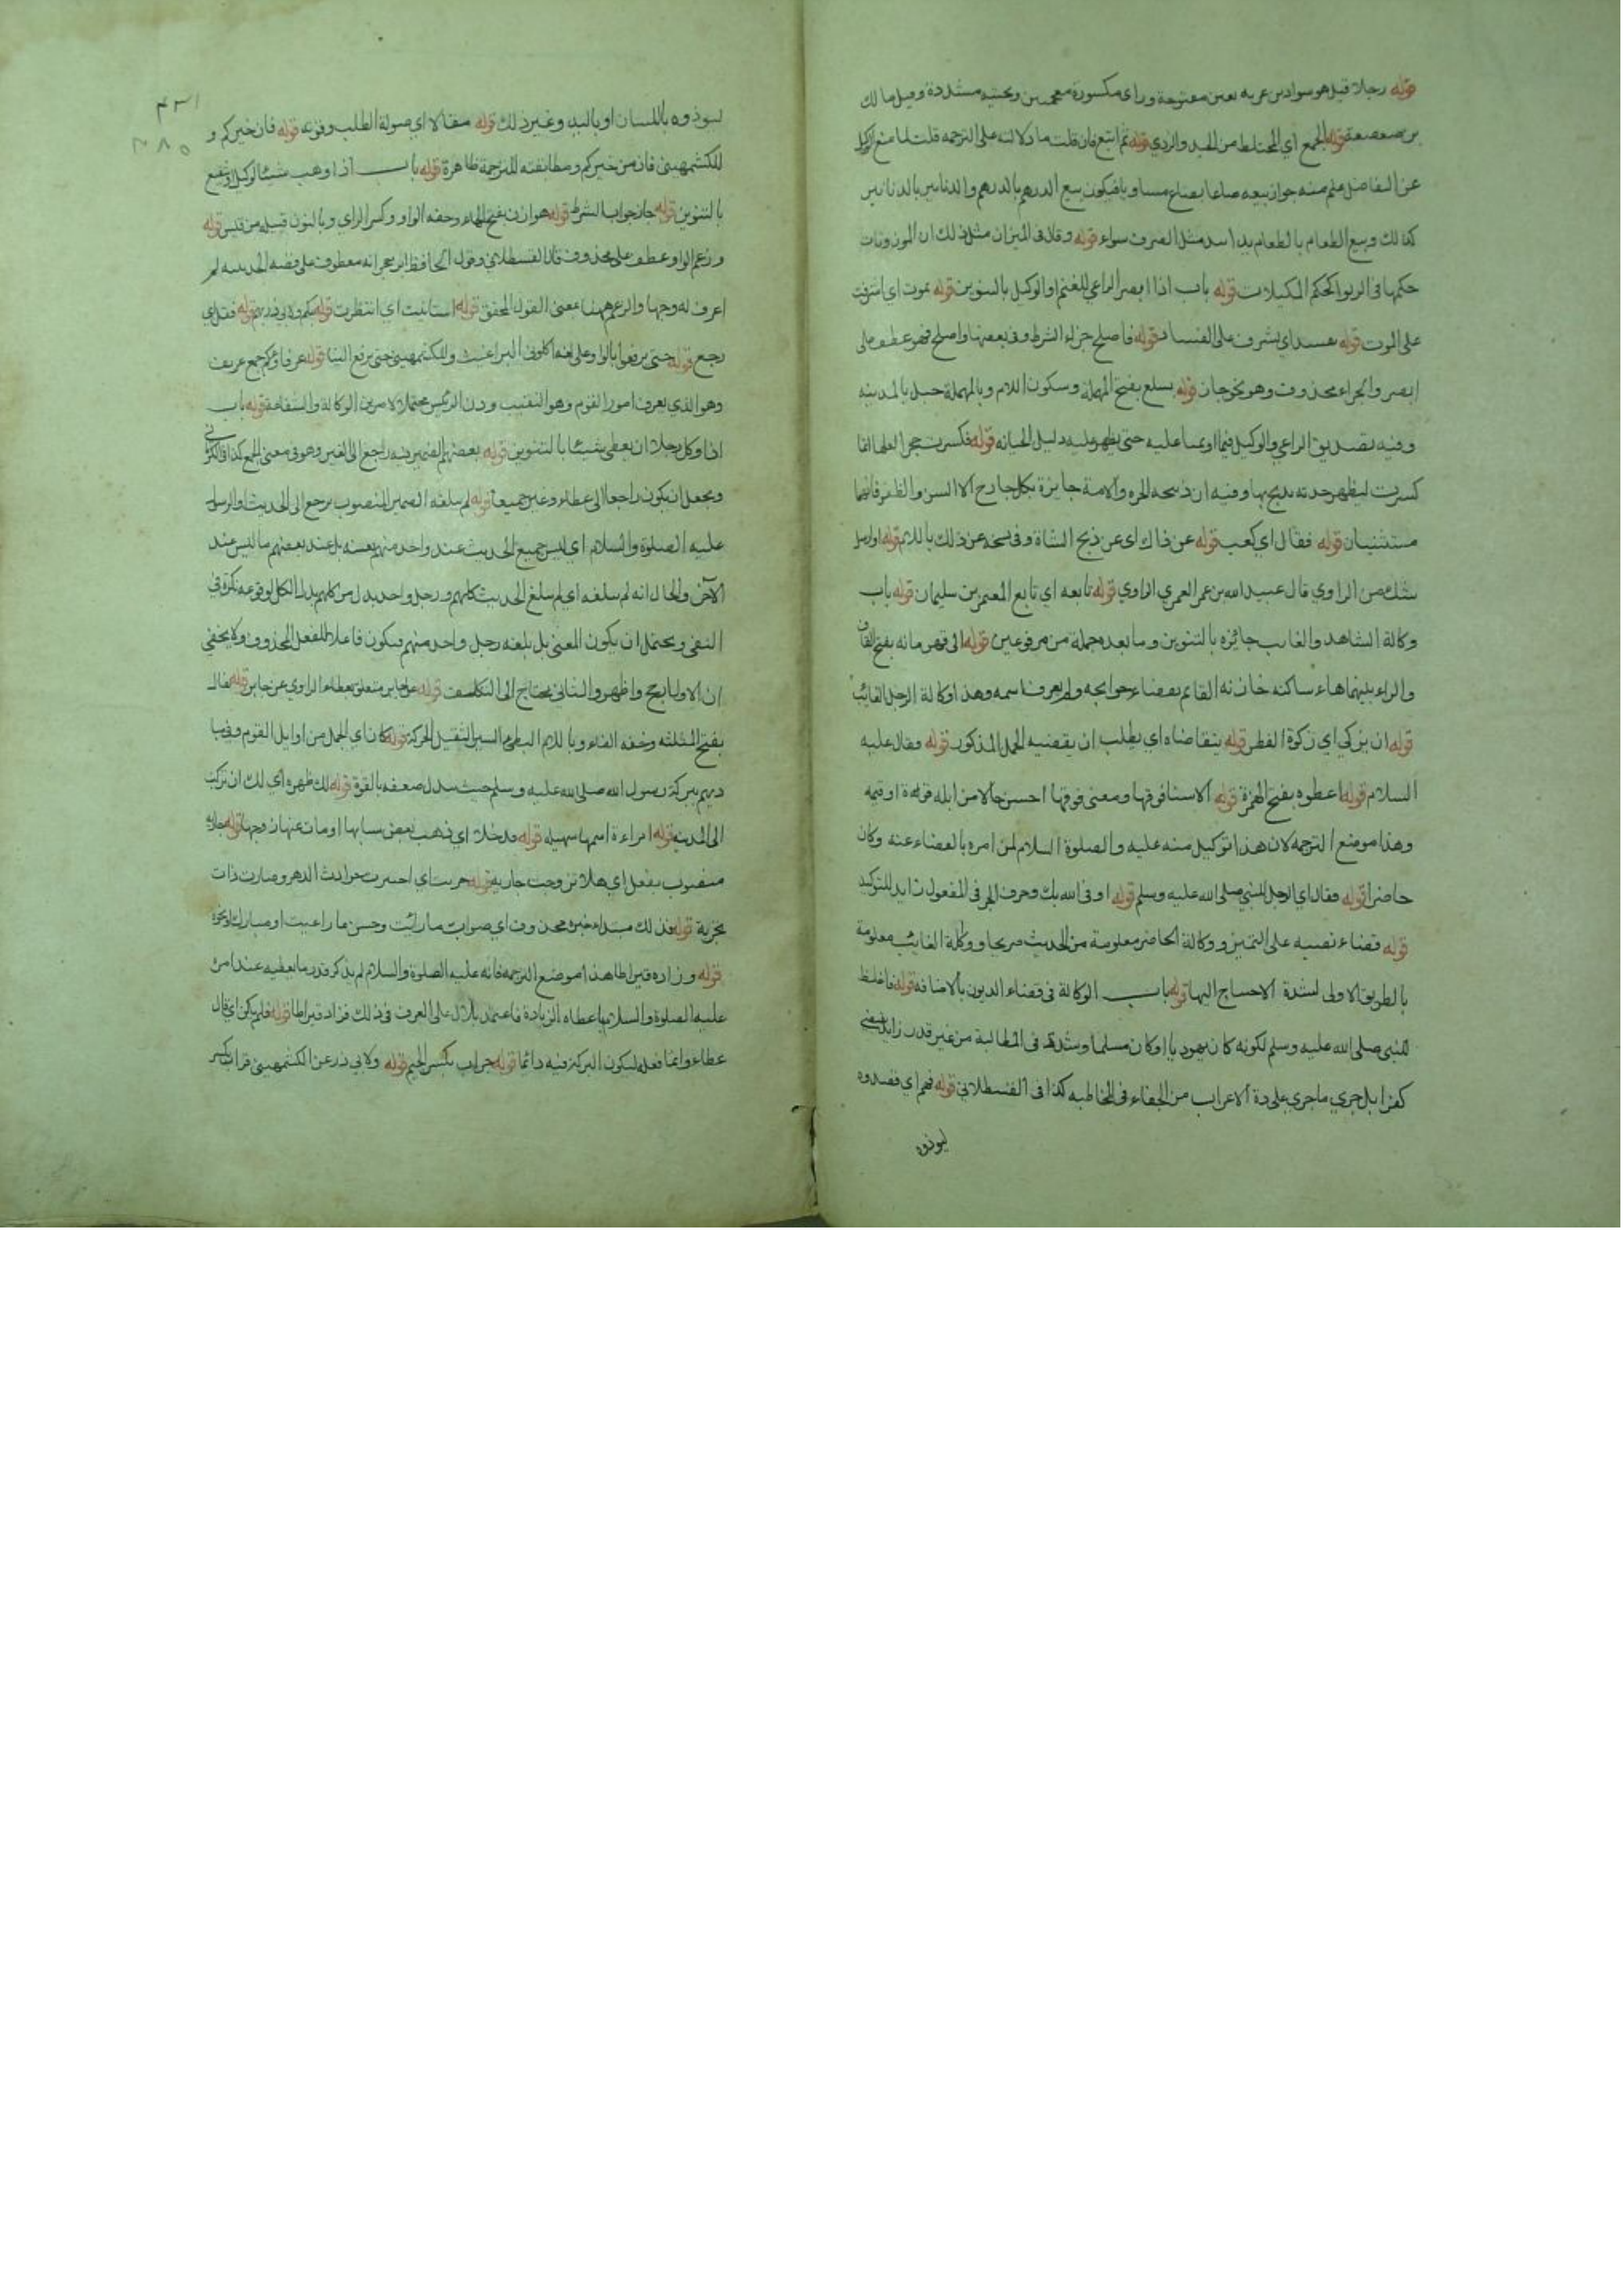 قوله رجلا قيل هو سواد بن غزيه بغين مفتوحة وزاى مكسورة معجمتين وتحتيه مشددة وقيل مالك
بن صعصعة قوله الجمع اي المختلط من الجيد والردي قوله ثم ابتع فان قلت ما دلالته على الترجمه قلت لما منع الوكيل
عن التفاضل علم منه جواز بيعه صاعا بصاع مساويا فيكون بيع الدرهم بالدرهم والدنانير بالدنانير
كذالك وبيع الطعام بالطعام يدا بيد مثل الصرف سواء قوله وقال فى الميزان مثل ذلك ان الموزونات
حكمها فى الربوا حكم المكيلات قوله باب اذا ابصر الراعي للغنم او الوكيل بالتنوين قوله تموت اي اشرفت
على الموت قوله يفسد اي يشرف على الفساد قوله فاصلح جزاء الشرط وفى بعضها واصلح فهو عطف على
ابصر والجزاء محذوف وهو نحو جاز قوله بسلع بفتح المهملة وسكون اللام وبالمهملة جبل بالمدينه
وفيه تصديق الراعي والوكيل فيما اوتمنا عليه حتى يظهر عليه دليل الخيانه قوله فكسرت حجرا لعلها انما
كسرت ليظهر حدته يذبح بها وفيه ان ذبيحة الحره والامة جايزة بكل جارح الا السن والظفر فانهما
مستثنيان قوله فقال اي كعب قوله عن ذاك اى عن ذبح الشاة وفى نسخة عن ذلك باللام قوله او ارسل
شك من الراوي قال عبيد الله بن عمر العمري الراوي قوله تابعه اي تابع المعتمر بن سليمان قوله باب
وكالة الشاهد والغايب جائزه بالتنوين وما بعده جملة من مرفوعين قوله الى قهرمانه بفتح القاف
والراء بينهما هاء ساكنه خازنه القائم بقضاء حوايجه ولم يعرف اسمه وهذا وكالة الرجل الغائب
قوله ان يزكي اي زكوة الفطر قوله يتقاضاه اي يطلب ان يقضيه الجمل المذكور قوله وقال عليه
السلام قوله اعطوه بفتح الهمزة قوله الا سنا فوقها ومعنى فوقها احسن حالا من ابله قوة او قيمه
وهذا موضع الترجمه لان هذا توكيل منه عليه والصلوة السلام لمن امره بالقضاء عنه وكان
حاضرا قوله وقال اي الرجل للنبي صلى الله عليه وسلم قوله اوفى الله بك وحرف الجر فى المفعول زايد للتوكيد
قوله قضاء نصبه على التمييز ووكالة الحاضر معلومة من الحديث صريحا ووكالة الغائب معلومة
بالطريق الاولى لشدة الاحتياج اليها قوله باب الوكالة فى قضاء الديون بالاضافه قوله فاغلظ
للنبى صلى الله عليه وسلم لكونه كان يهوديا او كان مسلما وشدد فى المطالبة من غير قدر زايد يقتضي
كفرا بل جرى ماجرى على عادة الاعراب من الجفاء فى المخاطبه كذا فى القسطلاني قوله فهم اي قصدوه
ليوذوه
٤٣١
٢٨٥
ليوذوه باللسان او باليد وغير ذلك قوله مقالا اي صولة الطلب وقوته قوله فان خيركم و
للكشميهنى فان من خيركم ومطابقته للترجمة ظاهرة قوله باب اذا وهب شيئا لوكيل او شفيع
بالتنوين قوله جاز جواب الشرط قوله هوازن بفتح الهاء وخفه الواو وكسر الزاي وبالنون قبيله من قيس قوله
وزعم الواو عطف على محذوف قال القسطلاني وقول الحافظ ابن حجر انه معطوف على قصه الحديبيه لم
اعرف له وجها والزعم هنا معنى القول المحقق قوله استانيت اي انتظرت قوله منكم ولابي ذر بهم قوله فقفل اي
رجع قوله حتى يرفعوا بالواو على لغة اكلونى البراغيث وللكشميهنى حتى يرفع الينا قوله عرفاؤكم جمع عريف
وهو الذي يعرف امور القوم وهو النقيب ودون الرئيس محتملا لامرين الوكالة والشفاعة قوله باب
اذا وكل رجلا ان يعطى شيئا بالتنوين قوله بعضهم الضمير فيه راجع الى الغير وهو فى معنى الجمع كذا قال الكرمانى
ويجعل ان يكون راجعا الى عطاء وغيره جميعا قوله لم يبلغه الضمير المنصوب يرجع الى الحديث او الرسول
عليه الصلوة والسلام اي ليس جميع الحديث عند واحد منهم بعينه بل عند بعضهم ما ليس عند
الآخر والحال انه لم يبلغه اي لم يبلغ الحديث كلهم ورجل واحد بدل من كلهم بدل الكل لوقوعه نكرة فى
النفى ويحتمل ان يكون المعنى بل بلغه رجل واحد منهم فيكون فاعلا للفعل المحذوف ولا يخفى
ان الاول ارجح واظهر والثانى يحتاج الى التكلف قوله عن جابر متعلق بعطاء الراوي عن جابر قوله ثفال
بفتح المثلثه وخفه الفاء وباللام البطئ السير الثقيل الحركة قوله كان اي الجمل من اوايل القوم وفيما
ديهم ببركة رسول الله صلى الله عليه وسلم حيث بدل ضعفه بالقوة قوله لك ظهره اي لك ان تركب
الى المدينه قوله امراءة اسمها سهيله قوله قد خلا اي ذهب بعض شبابها او مات عنها زوجها قوله جارية
منصوب بفعل اي هلا تزوجت جاريه قوله جربت اي اختبرت حوادث الدهر وصارت ذات
تجربة قوله فذلك مبتداء خبره محذوف اي صواب ما رأيت وحسن ما راعيت او مبارك ونحوه
قوله وزاده قيراطا هذا موضع الترجمه فانه عليه الصلوة والسلام لم يذكر قدر ما يعطيه عند امره
عليه الصلوة والسلام باعطاء الزيادة فاعتمد بلال على العرف فى ذلك فزاد قيراطا قوله فلم يكن اي قال
عطاء وانما فعله ليكون البركة فيه دائما قوله جراب بكسر الجيم قوله ولابي ذر عن الكشميهنى قراب بكسر